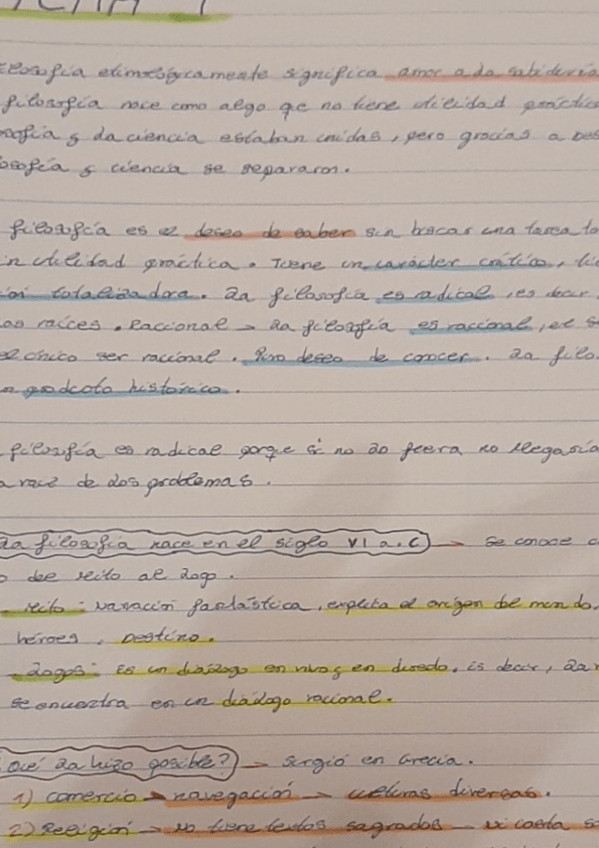 TEMA 1
filosofía etimológicamente significica amor a la sabiduría
filosofía nace como algo qe no tiene utilidad práctica
filosofía y la ciencia estaban unidas, pero gracias a
filosofía y ciencia se separaron.
filosofía es el deseo de saber sin buscar una tarea
in utilidad práctica. Tiene un carácter crítico,
totalizadora. La filosofía es radical, es decir
as raíces. Raccional → La filosofía es raccional, el
el único ser racional. Puro deseo de concer. La filo
n producto histórico.
filosofía es radical porqe si no lo fuera no llegaría
a raíz de los problemas.
La filosofía nace en el siglo VI a.C → se conoce c
o del mito al logo.
- mito: narración fantástica, explica el origen del mundo,
héroes, Destino.
- Logos: Es un diálogo en vivo y en directo, es decir, la
se encuentra en un diálogo racional.
¿Qué la hizo posible? → Surgió en Grecia.
1) comercio → navegación → culturas diversas.
2) Religión → No tiene textos sagrados → ni casta s